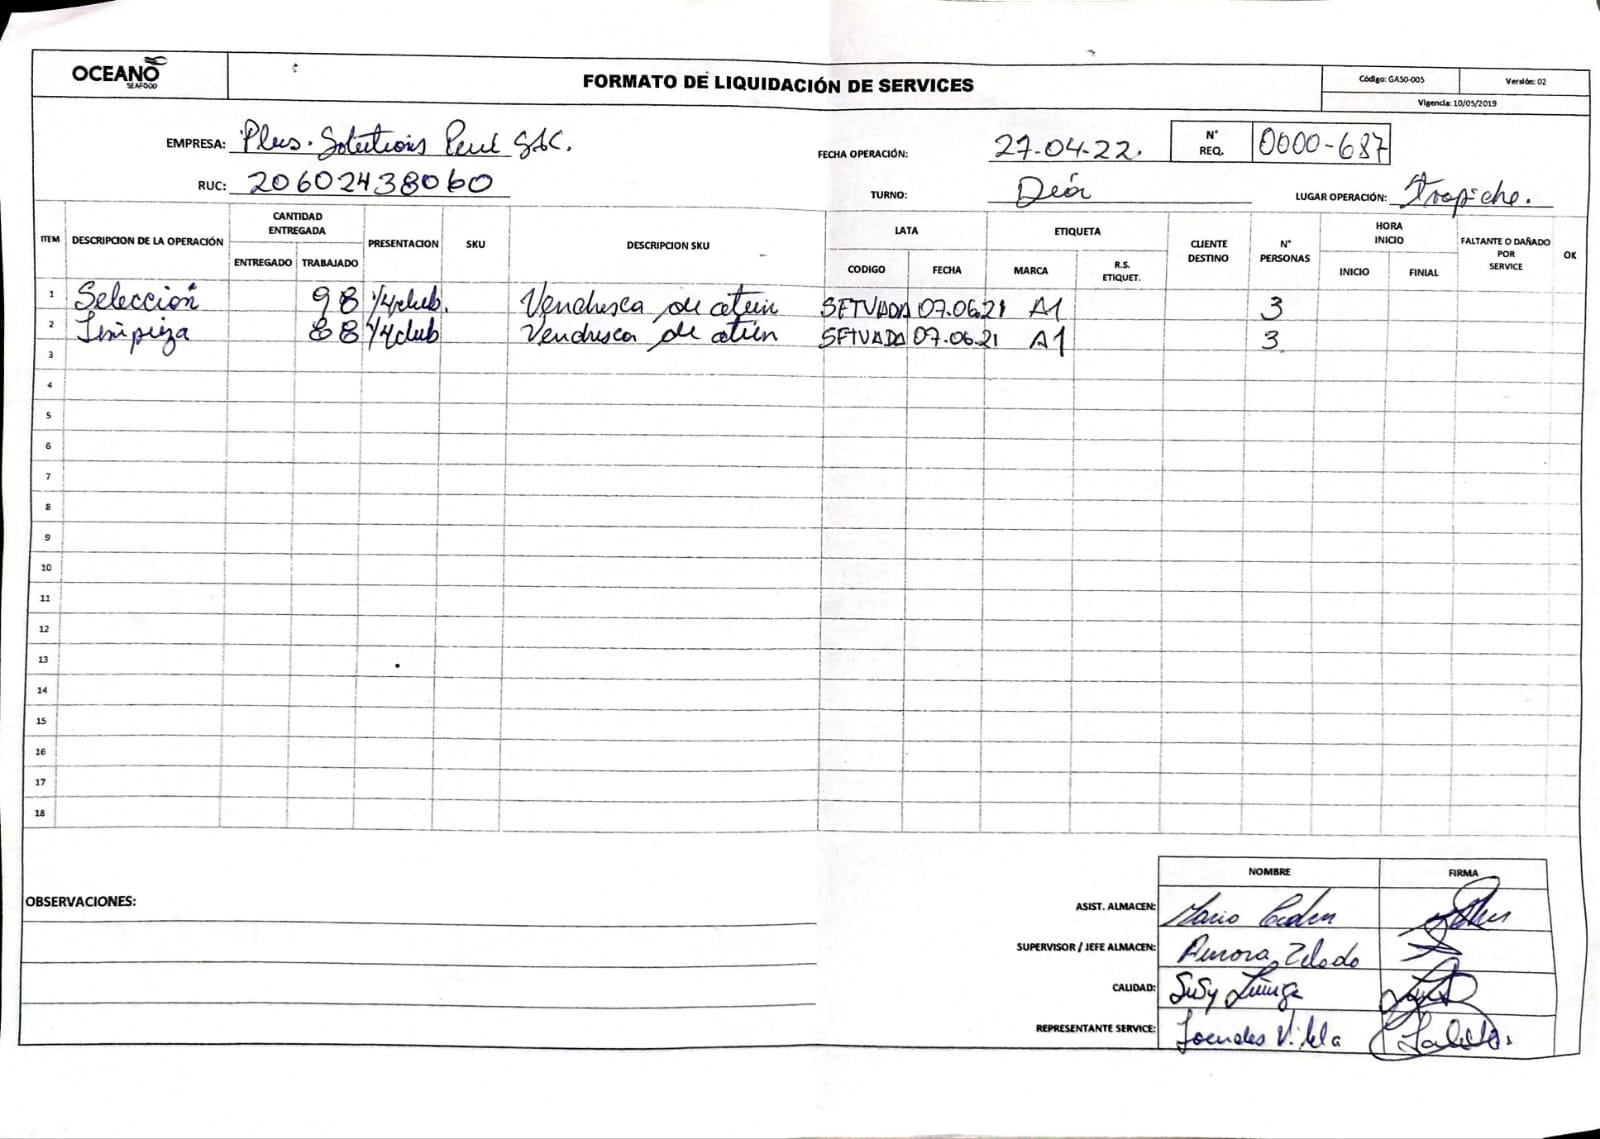 OCEANO
SEAFOOD
FORMATO DE LIQUIDACIÓN DE SERVICES
Código: GASO-005
Versión: 02
Vigencia: 10/05/2019
EMPRESA: Plus. Solutions Perú SAC.
FECHA OPERACIÓN: 27-04-22.
N° REQ. 0000-687
RUC: 20602438060
TURNO: Día
LUGAR OPERACIÓN: Trapiche.
ITEM DESCRIPCION DE LA OPERACIÓN CANTIDAD ENTREGADA PRESENTACION SKU DESCRIPCION SKU LATA ETIQUETA CLIENTE DESTINO N° PERSONAS HORA INICIO FALTANTE O DAÑADO POR SERVICE OK
ENTREGADO TRABAJADO CODIGO FECHA MARCA R.S. ETIQUET. INICIO FINIAL
1 Selección 98 1/4 club. Vendresca de atún SETVADA 07.06.21 A1 3
2 Limpieza 88 1/4 club Vendresca de atún SETVADA 07.06.21 A1 3
3
4
5
6
7
8
9
10
11
12
13
14
15
16
17
18
NOMBRE FIRMA
OBSERVACIONES:
ASIST. ALMACEN: Mario
SUPERVISOR / JEFE ALMACEN: Aurora Zelada
CALIDAD: Susy Zuñiga
REPRESENTANTE SERVICE: Lourdes Vilela